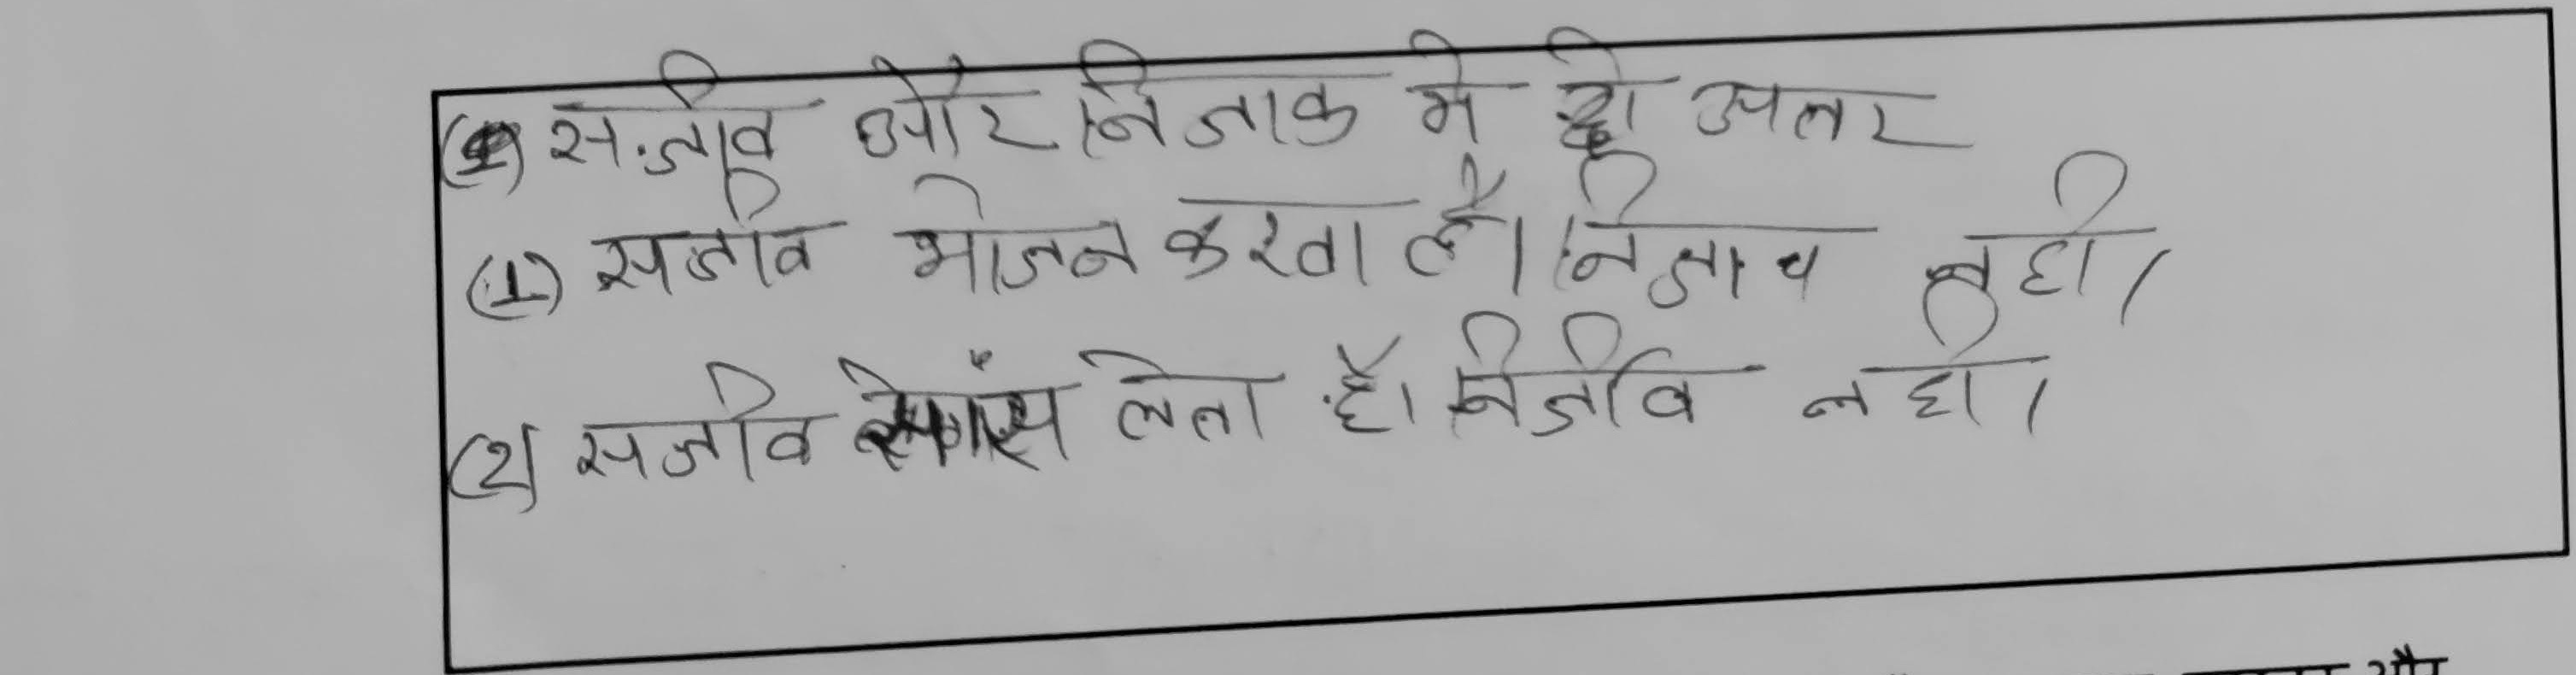 सजीव और निजाक मे दो अतर
(1) सजीव भोजन करता है। निजाव नही।
(2) सजीव साँस लेता है। निजीव नही।
और